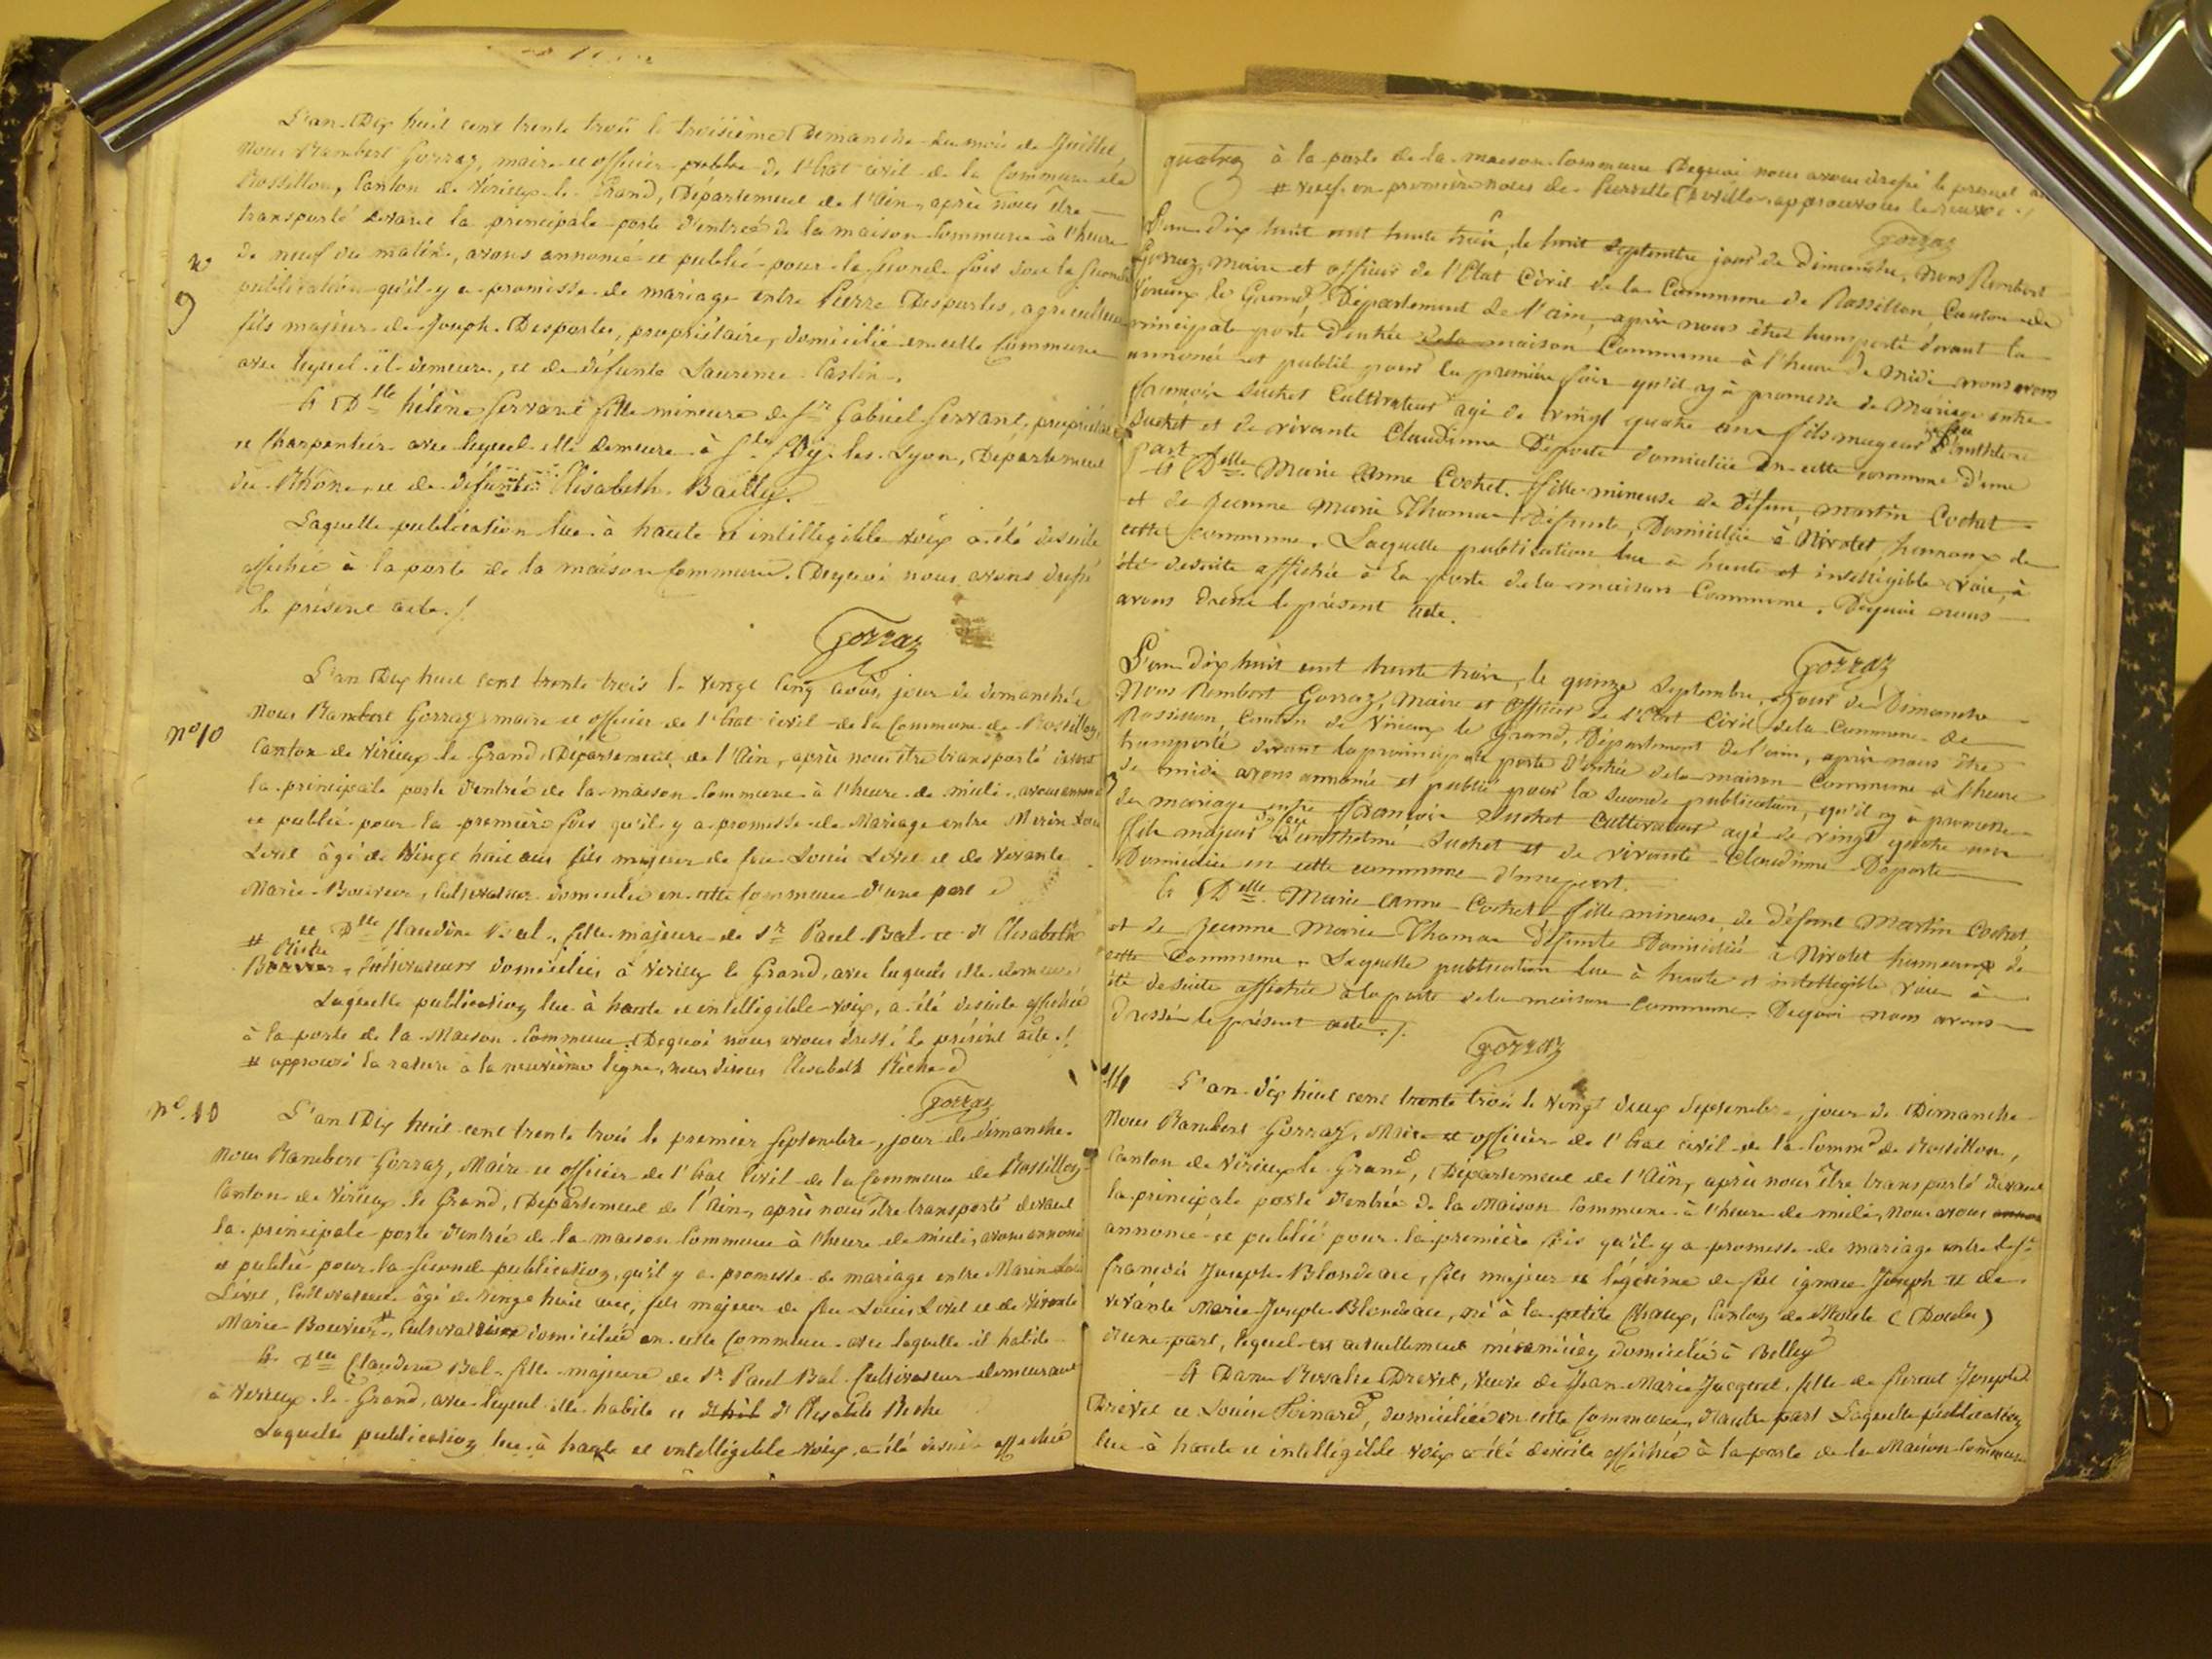 L'an Dix huit cent trente trois le troisième Dimanche du mois de Juillet,
Nous Rambert Gorraz, maire et officier public de l'Etat civil de la Commune de
Rossillon, Canton de Virieux le Grand, Département de l'Ain, après nous être
transporté devant la principale porte d'entrée de la maison Commune à l'heure
de neuf du matin, avons annoncé et publié pour la seconde fois
publication qu'il y a promesse de mariage entre Pierre Desportes, agriculteur
fils majeur de Joseph Desportes, propriétaire, domicilié en cette Commune
avec lequel il demeure, et de défunte Laurence Castin.
n° 9
Et Dlle hélène Servant fille mineure de Sr Gabriel Servant, propriétaire
et Charpentier avec lequel elle demeure à St Lyon, Département
du Rhône, et de défunte Elisabeth Bailly.
Laquelle publication lue à haute et intelligible voix a été de suite
affichée à la porte de la maison Commune. Dequoi nous avons dressé
le présent acte./
Gorraz
L'an Dix huit cent trente trois le vingt cinq août, jour de dimanche
n° 10
Nous Rambert Gorraz maire et officier de l'Etat civil de la Commune de Rossillon,
Canton de Virieux le Grand Département de l'Ain, après nous être transporté devant
la principale porte d'entrée de la maison Commune à l'heure de midi, avons annoncé
et publié pour la première fois qu'il y a promesse de Mariage entre Marin Louis
Livet âgé de vingt huit ans fils majeur de feu Louis Livet et de vivante
Marie Bouvier, Cultivateur domicilié en cette Commune d'une part
et Dlle Claudine Bal, fille majeure de Sr Paul Bal et d'Elisabeth
# Riche
Bouvier, Cultivateurs domiciliés à Virieux le Grand, avec lesquels elle demeure
Laquelle publication lue à haute et intelligible voix, a été de suite affichée
à la porte de la Maison Commune. Dequoi nous avons dressé le présent acte./
# approuvé la rature à la neuvième ligne, nous disons Elisabeth Riche
Gorraz
n°. 10
L'an Dix huit cent trente trois le premier Septembre, jour de dimanche.
Nous Rambert Gorraz, Maire et officier de l'Etat Civil de la Commune de Rossillon
Canton de Virieux le Grand, Département de l'Ain, après nous être transporté devant
la principale porte d'entrée de la maison Commune à l'heure de midi, avons annoncé
et publié pour la seconde publication, qu'il y a promesse de mariage entre Marin Louis
Livet, Cultivateur âgé de vingt huit ans, fils majeur de feu Louis Livet et de vivante
Marie Bouvier #, Cultivatrice domiciliée en cette Commune avec laquelle il habite
Et Dlle Claudine Bal fille majeure de Sr Paul Bal Cultivateur demeurant
à Virieux le Grand, avec lequel elle habite et d'Elisabeth Riche
Laquelle publication lue à haute et intelligible voix, a été de suite affichée
quatre à la porte de la maison Commune Dequoi nous avons dressé le présent
# veuf en première noces de approuvons le renvoi ./
Gorraz
L'an dix huit cent trente trois, le huit Septembre jour de Dimanche, Nous Rembert
Gorraz, Maire et officier de l'Etat Civil de la Commune de Rossillon, Canton de
Virieux le Grand, Département de l'ain, après nous être transporté devant la
principale porte d'entrée de la maison Commune à l'heure de Midi nous avons
annoncé et publié pour la première fois qu'il y à promesse de Mariage entre
françois Suchet Cultivateur agé de vingt quatre ans fils majeur de feu
Suchet et de vivante Claudinne Deporte domiciliée en cette commune d'une
part
Et Delle Marie Anne Cochet fille mineuse de défun, Martin Cochet
et de Jeanne Marie Thomas défunte, Domiciliée à Nivolet hameaux de
cette Commune. Laquelle publication lue à haute et intelligible voix, à
été desuite affichée à la porte de la maison Commune. Dequoi nous
avons dressé le présent acte.
Gorraz
L'an dix huit cent trente trois, le quinze Septembre, jour de Dimanche
Nous Rembert Gorraz, Maire et Officier de l'Etat Civil dela Commune de
Rossillon, Canton de Virieux le Grand, Département de l'ain, après nous être
transporté devant la principale porte d'entrée dela maison Commune à l'heure
de midi avons annoncé et publié pour la seconde publication, qu'il y à promesse
de mariage entre françois Suchet Cultivateur agé de vingt quatre ans
fils majeur de feu d'anthelme Suchet et de vivante Claudinne Deporte
Domiciliée en cette commune d'une part.
Et Delle Marie anne Cochet, fille mineuse, de défunt Martin Cochet,
et de Jeanne Marie Thomas défunte Domiciliée à Nivolet hameaux de
cette Commune. Laquelle publication lue à haute et intelligible voix à
été desuite affichée à la porte dela maison Commune. Dequoi nous avons
dressé le présent acte./.
Gorraz
L'an dix huit cent trente trois le vingt deux Septembre, jour de Dimanche
Nous Rambert Gorraz, Maire et officier de l'Etat civil de la Comme de Rossillon,
Canton de Virieux le Grand, Département de l'Ain, après nous être transporté devant
la principale porte d'entrée de la Maison Commune à l'heure de midi, Nous avons
annoncé et publié pour la première fois qu'il y a promesse de mariage entre le Sr
françois Joseph Blondeau, fils majeur et légitime de feu ignace Joseph et de
vivante Marie Joseph Blondeau, né à la petite Chaux, Canton de Mouthe (Doubs)
d'une part, lequel est actuellement mécanicien domicilié à Belley
Et Dame Rosalie Drevet, Veuve de Jean Marie Jacquet, fille de Joseph
Drevet et Louise Poinard, domiciliée en cette Commune, d'autre part Laquelle publication
lue à haute et intelligible voix a été de suite affichée à la porte de la Maison Commune